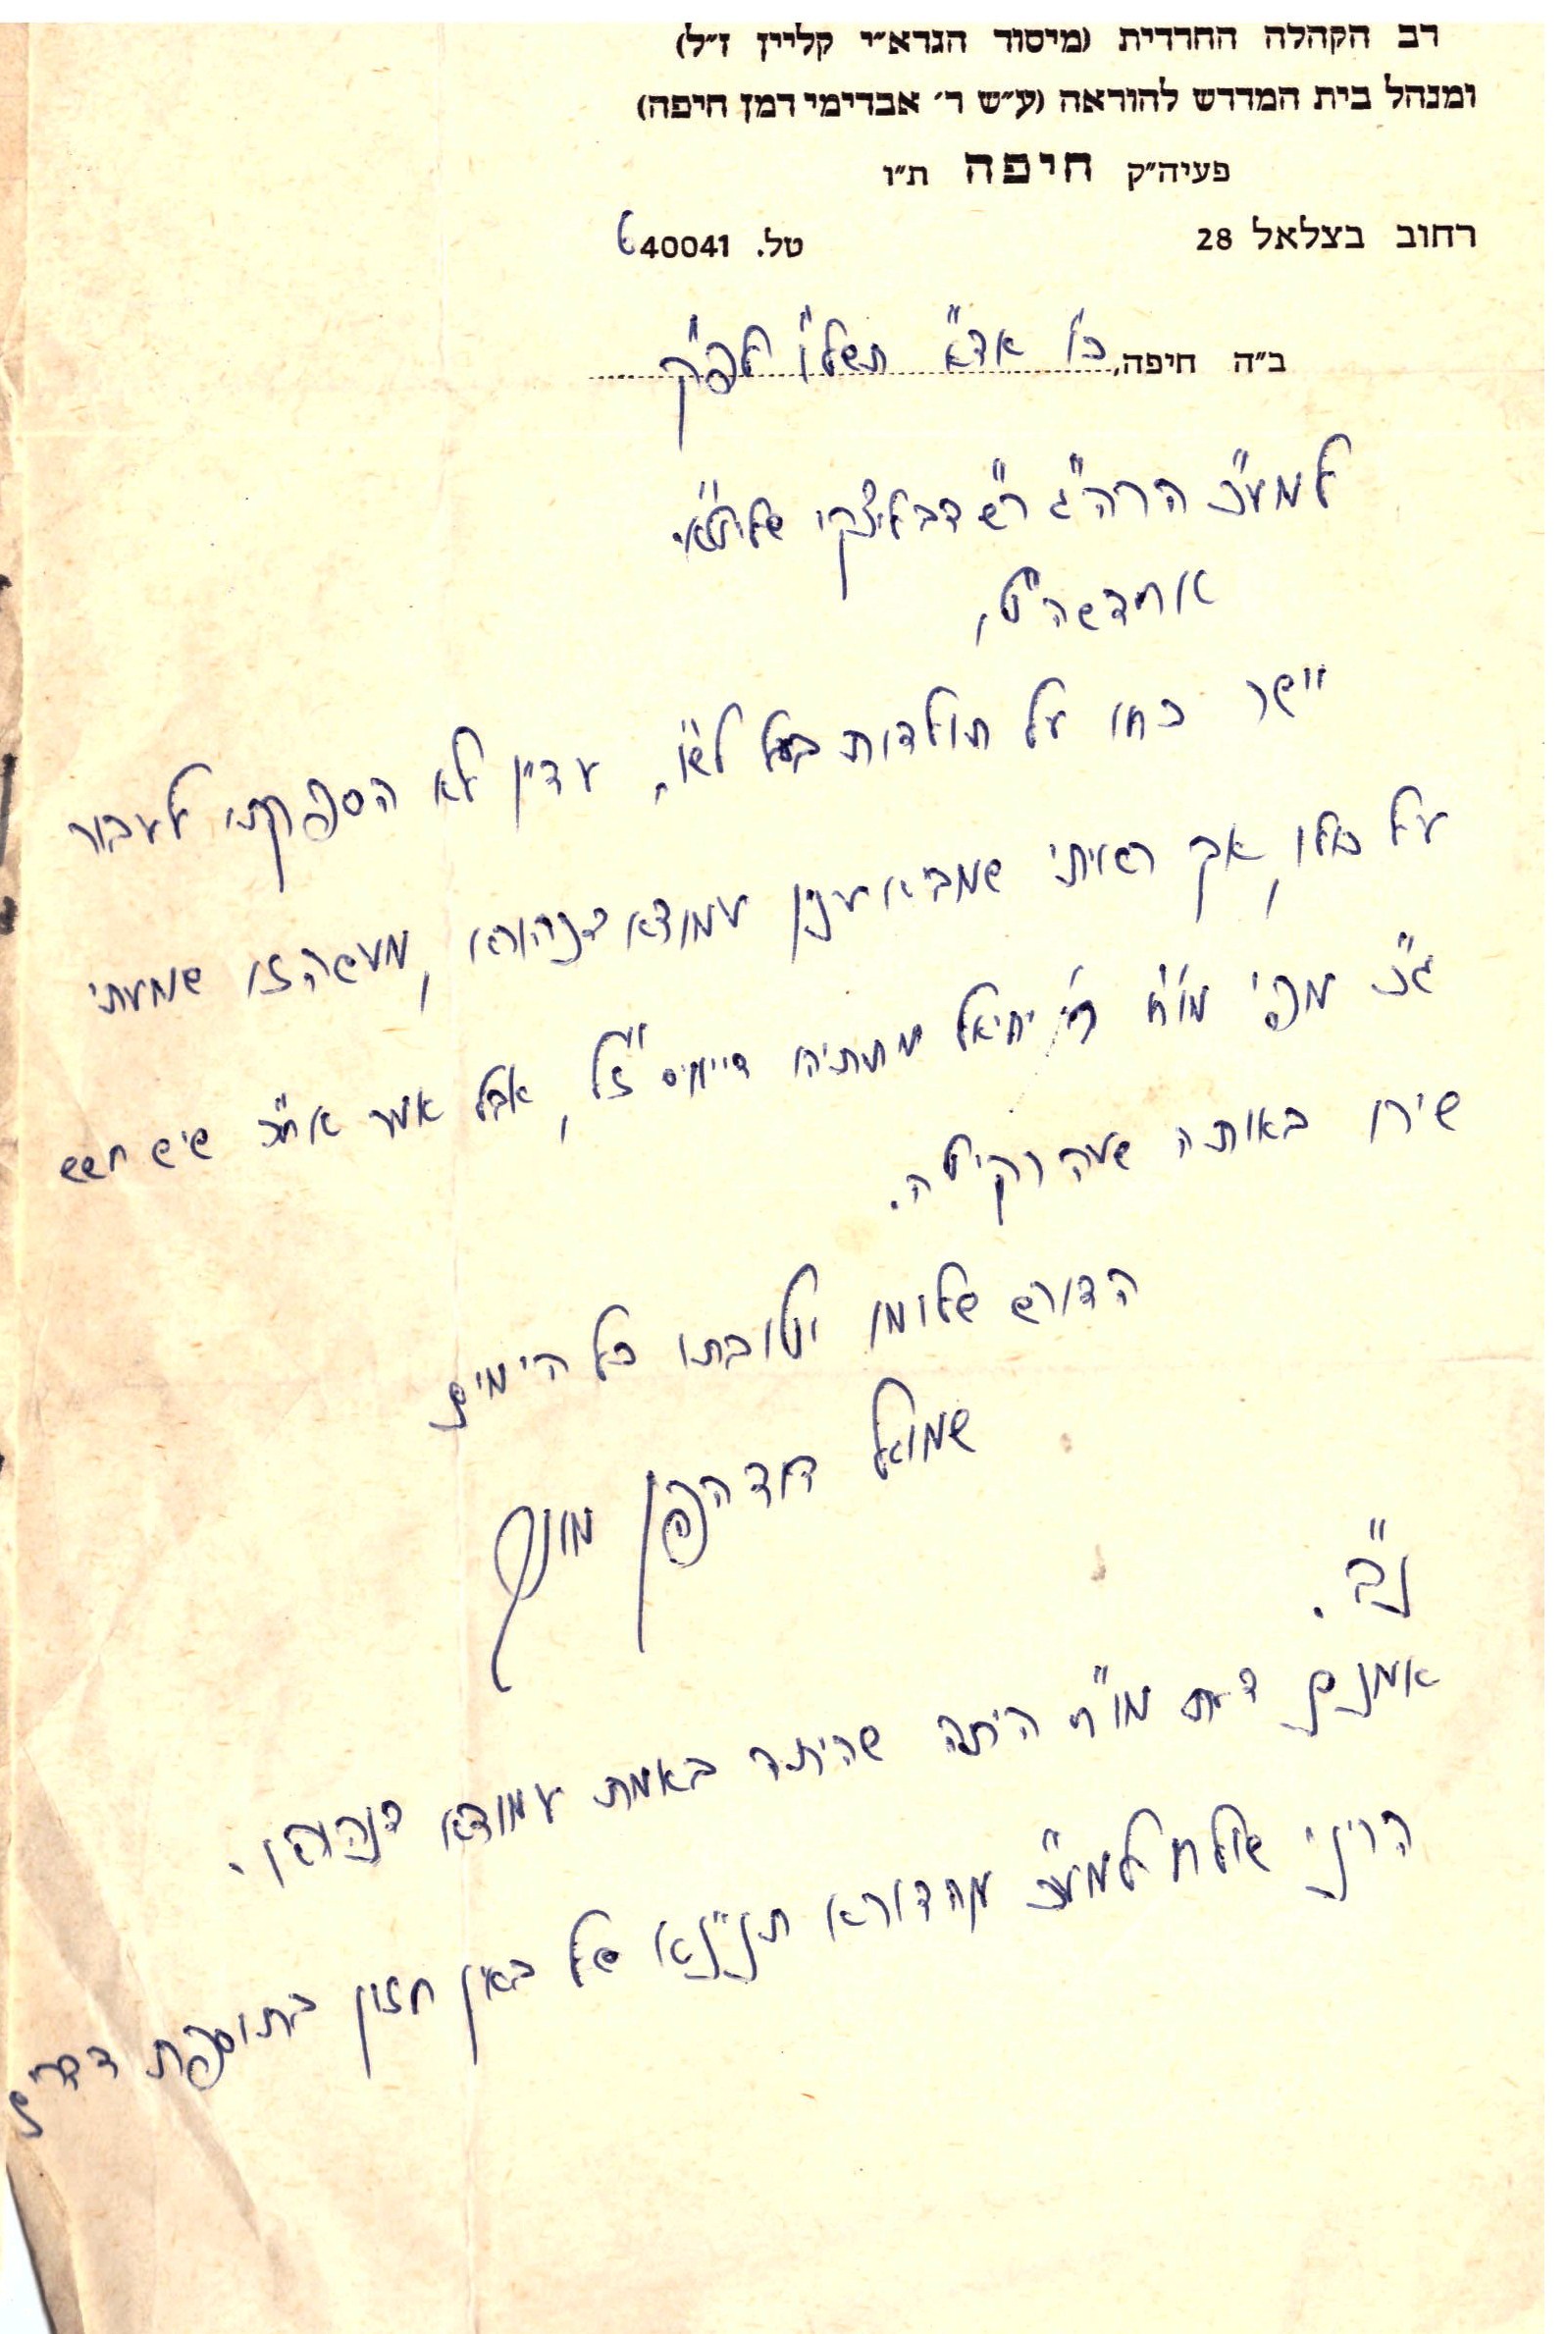 רב הקהלה החרדית (מיסוד הגרא״י קליין ז״ל)
ומנהל בית המדרש להוראה (ע״ש ר׳ אבדימי דמן חיפה)
פעיה״ק חיפה ת״ו
רחוב בצלאל 28 טל. 640041
ב״ה חיפה, כ״ו אד״א תשל״ו לפ״ק
למע״כ הרה״ג ר״ש דבליצקי שליט״א
אחדשה״ט,
יישר כחו על תולדות בעל לש״ו, עדיין לא הספקתי לעבור
על כולו, אך ראיתי שמביא ענין עמודא דנהורא, מעשה זו שמעתי
ג״כ מפי מו״ח ר׳ יחיאל מתתיהו ז״ל, אבל אמר אח״כ שיש חשש
שירו באותה שעה רקיטה.
הדורש שלומו וטובתו כל הימים
שמואל דוד הכהן מונק
נ״ב.
אמנם דעת מו״ח היתה שהיתה באמת עמודא דנהורא.
הריני שולח למע״כ מהדורא תנינא של באין חזון בתוספת דברים